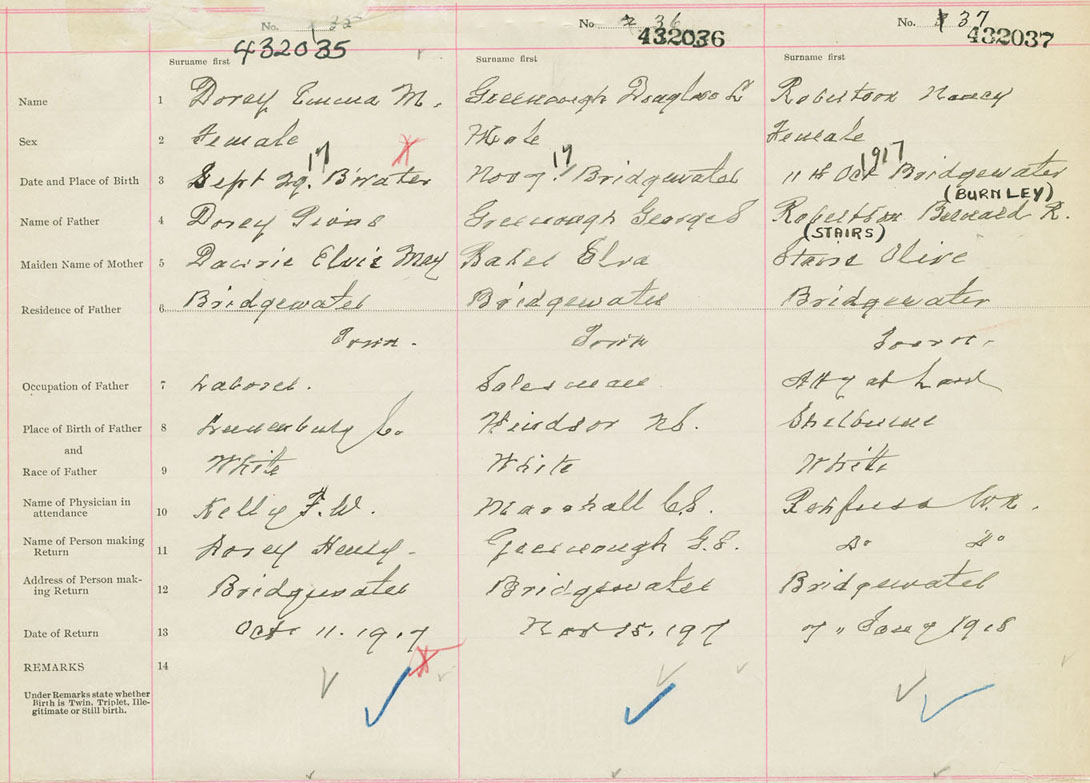 No. 35 No 36 No. 37
432035 432036 432037
Surname first Surname first Surname first
Name 1 Dorey Emma M. Greenough Douglas L Robertson Nancy
Sex 2 Female Male Female
17 17 1917
Date and Place of Birth 3 Sept 29. B'water Nov 7 Bridgewater 11th Oct Bridgewater
(BURNLEY)
Name of Father 4 Dorey Greenough George S Robertson Bernard R.
(STAIRS)
Maiden Name of Mother 5 Elvie May Baker Elva Stairs Olive
Residence of Father 6 Bridgewater Bridgewater Bridgewater
Town. Town Town.
Occupation of Father 7 Laborer. Salesman Atty at Law
Place of Birth of Father 8 Lunenburg Co. Windsor NS. Shelburne
and
Race of Father 9 White White White
Name of Physician in
attendance 10 Kelly F.W. Marshall C.S. Penfuss W.N.
Name of Person making
Return 11 Dorey Henry. Greenough G.S. Do Do
Address of Person mak-
ing Return 12 Bridgewater Bridgewater Bridgewater
Date of Return 13 Oct 11. 1917 Nov 15. 197 7 " Jany 1918
REMARKS 14
Under Remarks state whether
Birth is Twin, Triplet, Ille-
gitimate or Still birth.